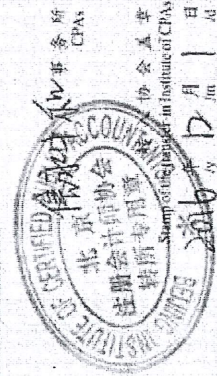 事务所
CPAs
协会盖章
Stamp of the Transfer-in Institute of CPAs
2016年12月1日
/y /m /d
BEIJING INSTITUTE OF CERTIFIED ACCOUNTAN
北京
注册会计师协会
转所专用章